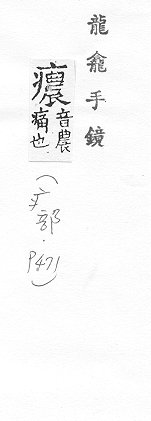 龍龕手鏡
癑
音農
痛也
(疒部.P471)